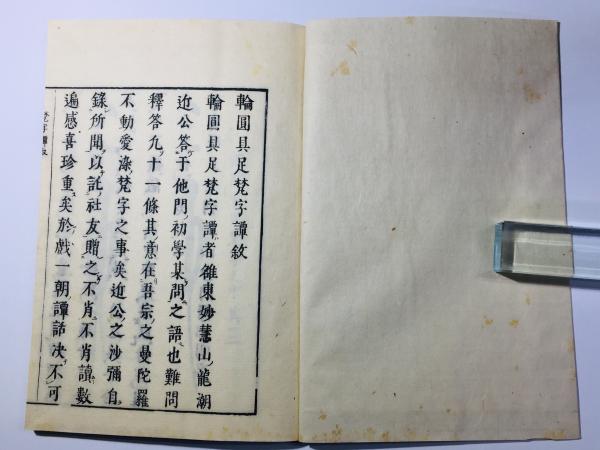 輪圓具足梵字譚敘
輪圓具足梵字譚者雒東妙慧山龍潮
近公答于他門初學某問之語也難問
釋答九十一條其意在吾宗之曼陀羅
不動愛染梵字之事矣近公之沙彌自
錄所聞以託社友贈之不肖不肖讀數
遍感喜珍重矣於戲一朝譚話次不可
梵字譚敘